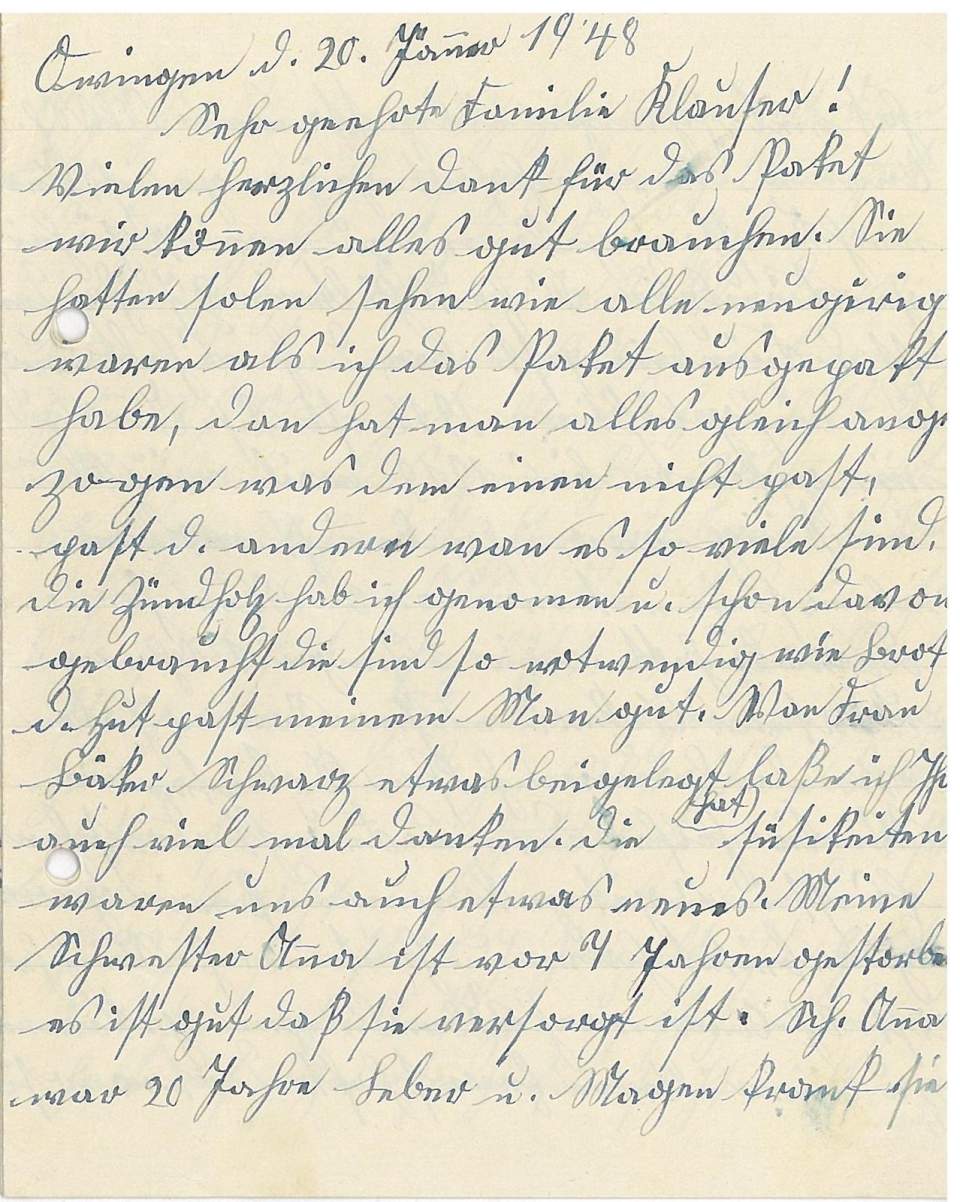 Owingen d. 20. Jänner 1948
Sehr geehrte Familie Klauser!
Vielen herzlichen Dank für das Paket
wir können alles gut brauchen. Sie
hatten solen sehen wie alle neugirig
waren als ich das Paket ausgepakt
habe, dan hat man alles gleich ange
zogen was dem einen nicht past,
past d. andern wan es so viele sind.
die Zündholz hab ich genomen u. schon davon
gebraucht die sind so notwendig wie Brot
d. Hut past meinem Man gut. Wan Frau
Bäker Schwarz etwas beigelegt hat laße ich Ihr
auch viel mal danken. die süsikeiten
waren uns auch etwas neues. Meine
Schwester Anna ist vor 7 Jahren gestorbe
es ist gut daß sie versorgt ist. Sch. Anna
war 20 Jahre Leber u. Magen krank sie